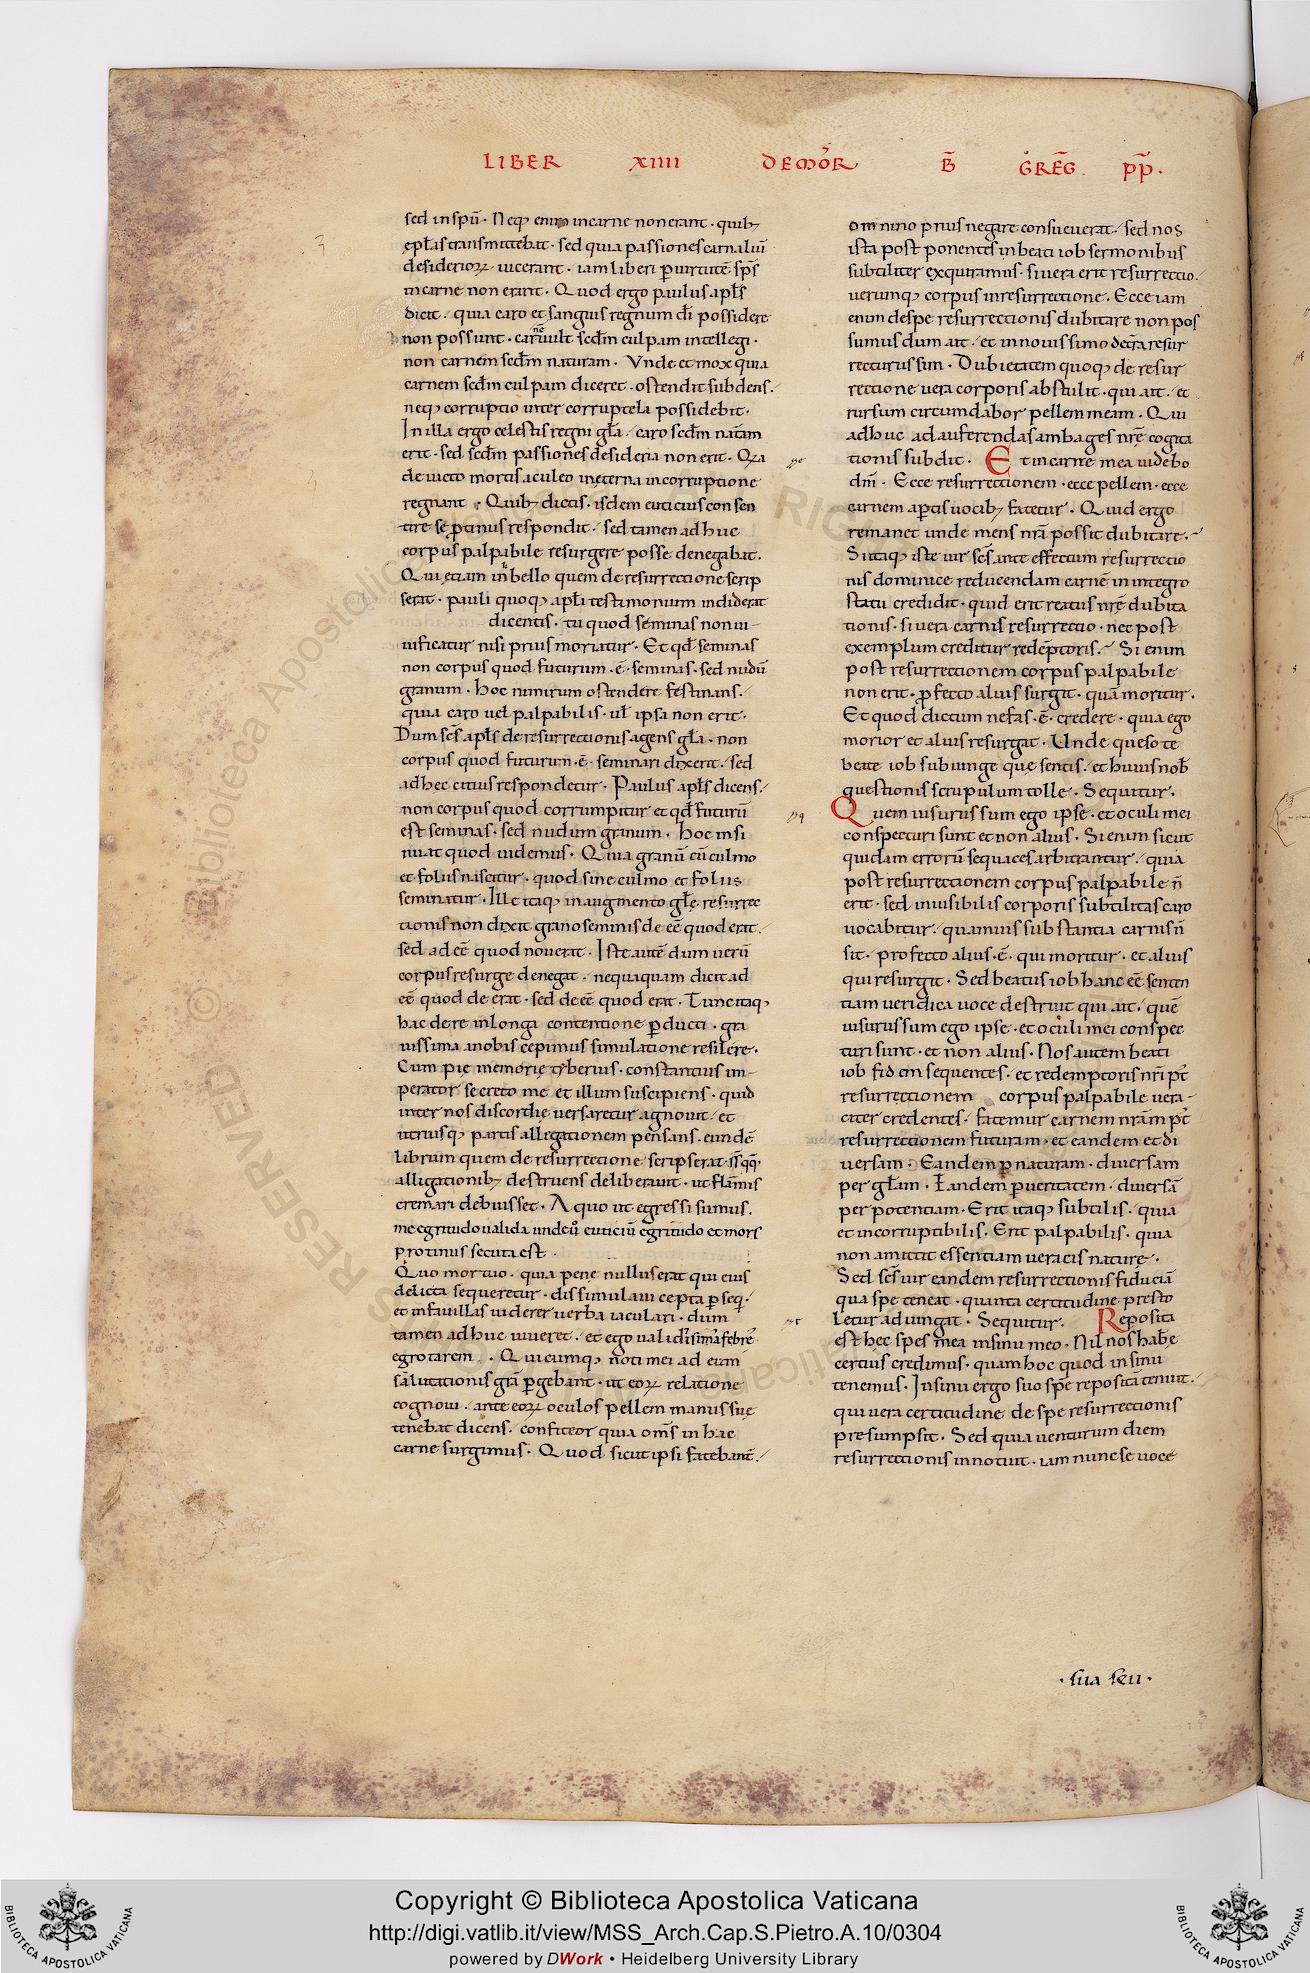 LIBER XIIII DE MOR̄ B̄ GREḠ PP̄.
sed in spū · Neq; enim in carne non erant · quib;
epl̄as transmittebat · sed quia passiones carnaliū
desiderioꝝ uicerant · iam liberi ꝑ uirtutē sp̄s
in carne non erant · Quod ergo paulus apl̄s
dicit · quia caro et sanguis regnum dī possidere
non possunt · carnē uult secd̄m culpam intellegi ·
non carnem secd̄m naturam · Vnde et mox quia
carnem secd̄m culpam diceret · ostendit subdens ·
neq; corruptio incorruptela possidebit ·
In illa ergo celestis regni gl̄a · caro secd̄m nat̄am
erit · sed secd̄m passiones desideria non erit · Quia
deuicto mortis aculeo in ęterna incorruptione
regnant · Quib; dictis · isdem euticius consen
tire se ꝓtinus respondit · sed tamen adhuc
corpus palpabile resurgere posse denegabat ·
Qui etiam in libello quem de resurrectione scrip
serat · pauli quoq; apl̄i testimonium indiderat
dicentis · tu quod seminas non ui
uificatur nisi prius moriatur · Et qd̄ seminas
non corpus quod futurum · ē · seminas · sed nudū
granum · hoc nimirum ostendere festinans ·
quia caro uel palpabilis · ul̄ ipsa non erit ·
Dum sc̄s apl̄s de resurrectionis agens gl̄a · non
corpus quod futurum · ē · seminari dixerit · sed
ad hec citius respondetur · Paulus apl̄s dicens ·
non corpus quod corrumpitur et qd̄ futurū
est seminas · sed nudum granum · hoc insi
nuat quod uidemus · Quia granū cū culmo
et foliis nascitur · quod sine culmo et foliis
seminatur · Ille itaq; in augmento gl̄ę resurrec
tionis non dixit grano seminis deeē quod erat ·
sed adeē quod non erat · Iste autē dum uerū
corpus resurge denegat · nequaquam dicit ad
eē quod deerat · sed deeē quod erat · Tunc itaq;
hac de re in longa contentione ꝑducti · gra
uissima a nobis cepimus simulatione resilere ·
Cum pię memorię tyberius · constantius im
perator secreto me et illum suscipiens · quid
inter nos discordię uersaretur agnouit · et
utriusq; partis allegationem pensans · eundē
librum quem de resurrectione scripserat ·
alligationib; destruens deliberauit · ut flāmis
cremari debuisset · A quo ut egressi sumus ·
me egritudo ualida euticiū egritudo et mors
protinus secuta est ·
Quo mortuo · quia pene nullus erat qui eius
delicta sequeretur · dissimulaui cepta ꝑseq̄ ·
et in fauillas uiderer uerba iaculari · dum
tamen adhuc uiueret · et ego ualidissima febre
egrotarem · Quicumq; noti mei ad eum
salutationis gr̄a ꝑgebant · ut eoꝝ relatione
cognoui · ante eoꝝ oculos pellem manus suę
tenebat dicens · confiteor quia om̄s in hac
carne surgimus · Quod sicut ipsi fatebant̄ ·
omnino prius negare consueuerat · sed nos
ista postponentes in beati iob sermonibus
subtiliter exquiramus · si uera erit resurrectio ·
uerumq; corpus in resurrectione · Ecce iam
enim de spe resurrectionis dubitare non pos
sumus dum ait · et in nouissimo de terra resur
recturus sim · Dubietatem quoq; de resur
rectione uera corporis abstulit · qui ait · et
rursum circumdabor pellem meam · Qui
adhuc ad auferendas ambages nrē cogita
tionis subdit · Et in carne mea uidebo
dm̄ · Ecce resurrectionem · ecce pellem · ecce
carnem aꝑtis uocib; fatetur · Quid ergo
remanet unde mens nrā possit dubitare ·
Si itaq; iste uir sc̄s ante effectum resurrectio
nis dominice reducendam carnē in integro
statu credidit · quid erit reatus nrē dubita
tionis · si uera carnis resurrectio · nec post
exemplum creditur redēptoris · Si enim
post resurrectionem corpus palpabile
non erit · profecto alius surgit · quā moritur ·
Et quod dictum nefas · ē · credere · quia ego
morior et alius resurgat · Unde queso te
beate iob subiunge quę sentis · et huius nob̄
questionis scrupulum tolle · Sequitur ·
Quem uisurus sum ego ipse · et oculi mei
conspecturi sunt et non alius · Si enim sicut
quidam errorū sequaces arbitrantur · quia
post resurrectionem corpus palpabile n̄
erit · sed inuisibilis corporis subtilitas caro
uocabitur · quamuis substantia carnis n̄
sit · profecto alius · ē · qui moritur · et alius
qui resurgit · Sed beatus iob hanc eē senten
tiam ueridica uoce destruit qui ait · quē
uisurus sum ego ipse · et oculi mei conspec
turi sunt · et non alius · Nos autem beati
iob fidem sequentes · et redemptoris nrī
resurrectionem corpus palpabile uera
citer credentes · fatemur carnem nrām
resurrectionem futuram · et eandem et di
uersam · Eandem ꝑ naturam · diuersam
per gl̄am · Eandem ꝑ ueritatem · diuersā
per potentiam · Erit itaq; subtilis · quia
et incorruptibilis · Erit palpabilis · quia
non amittit essentiam ueracis nature ·
Sed sc̄s uir eandem resurrectionis fiduciā
qua spe teneat · quanta certitudine presto
letur adiungat · Sequitur · Reposita
est hec spes mea in sinu meo · Nil nos habere
certius credimus · quam hoc quod in sinu
tenemus · In sinu ergo suo spē repositā tenuit ·
qui uera certitudine de spe resurrectionis
presumpsit · Sed quia uenturum diem
resurrectionis innotuit · iam nunc se uoce
· sua seu ·
Copyright © Biblioteca Apostolica Vaticana
http://digi.vatlib.it/view/MSS_Arch.Cap.S.Pietro.A.10/0304
powered by DWork • Heidelberg University Library
BIBLIOTECA APOSTOLICA VATICANA
BIBLIOTECA APOSTOLICA VATICANA